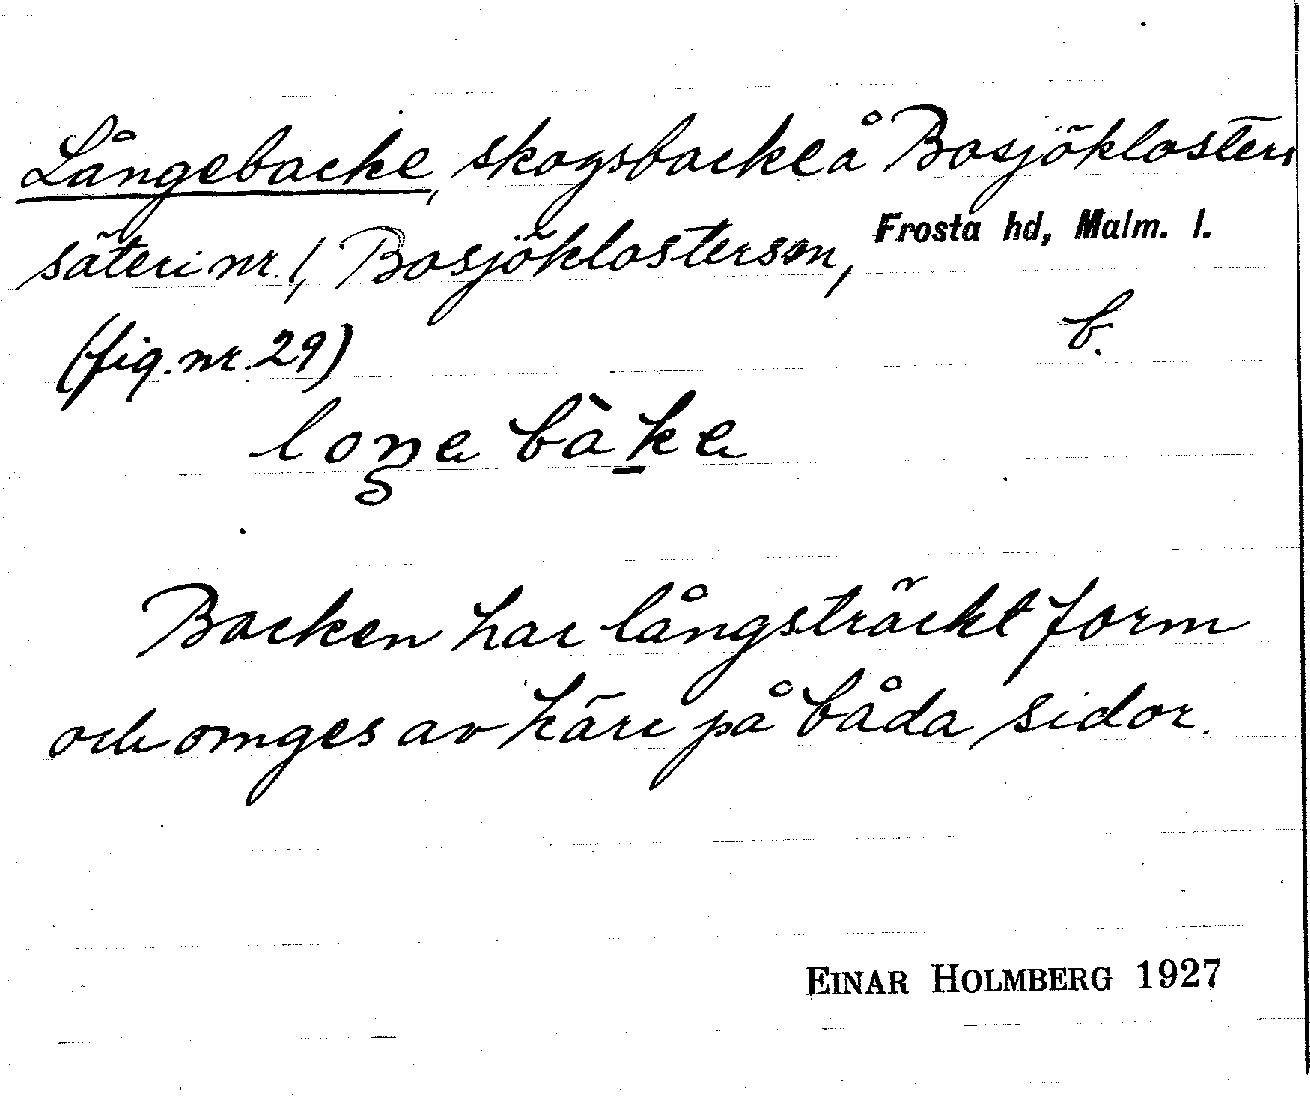 Långebacke, skogsbacke å Bosjöklosters
säteri nr 1, Bosjöklosters sn, Frosta hd, Malm. l.
(fig. nr. 29) b.
loŋə bàkə
Backen har långsträckt form
och omges av kärr på båda sidor.
EINAR HOLMBERG 1927